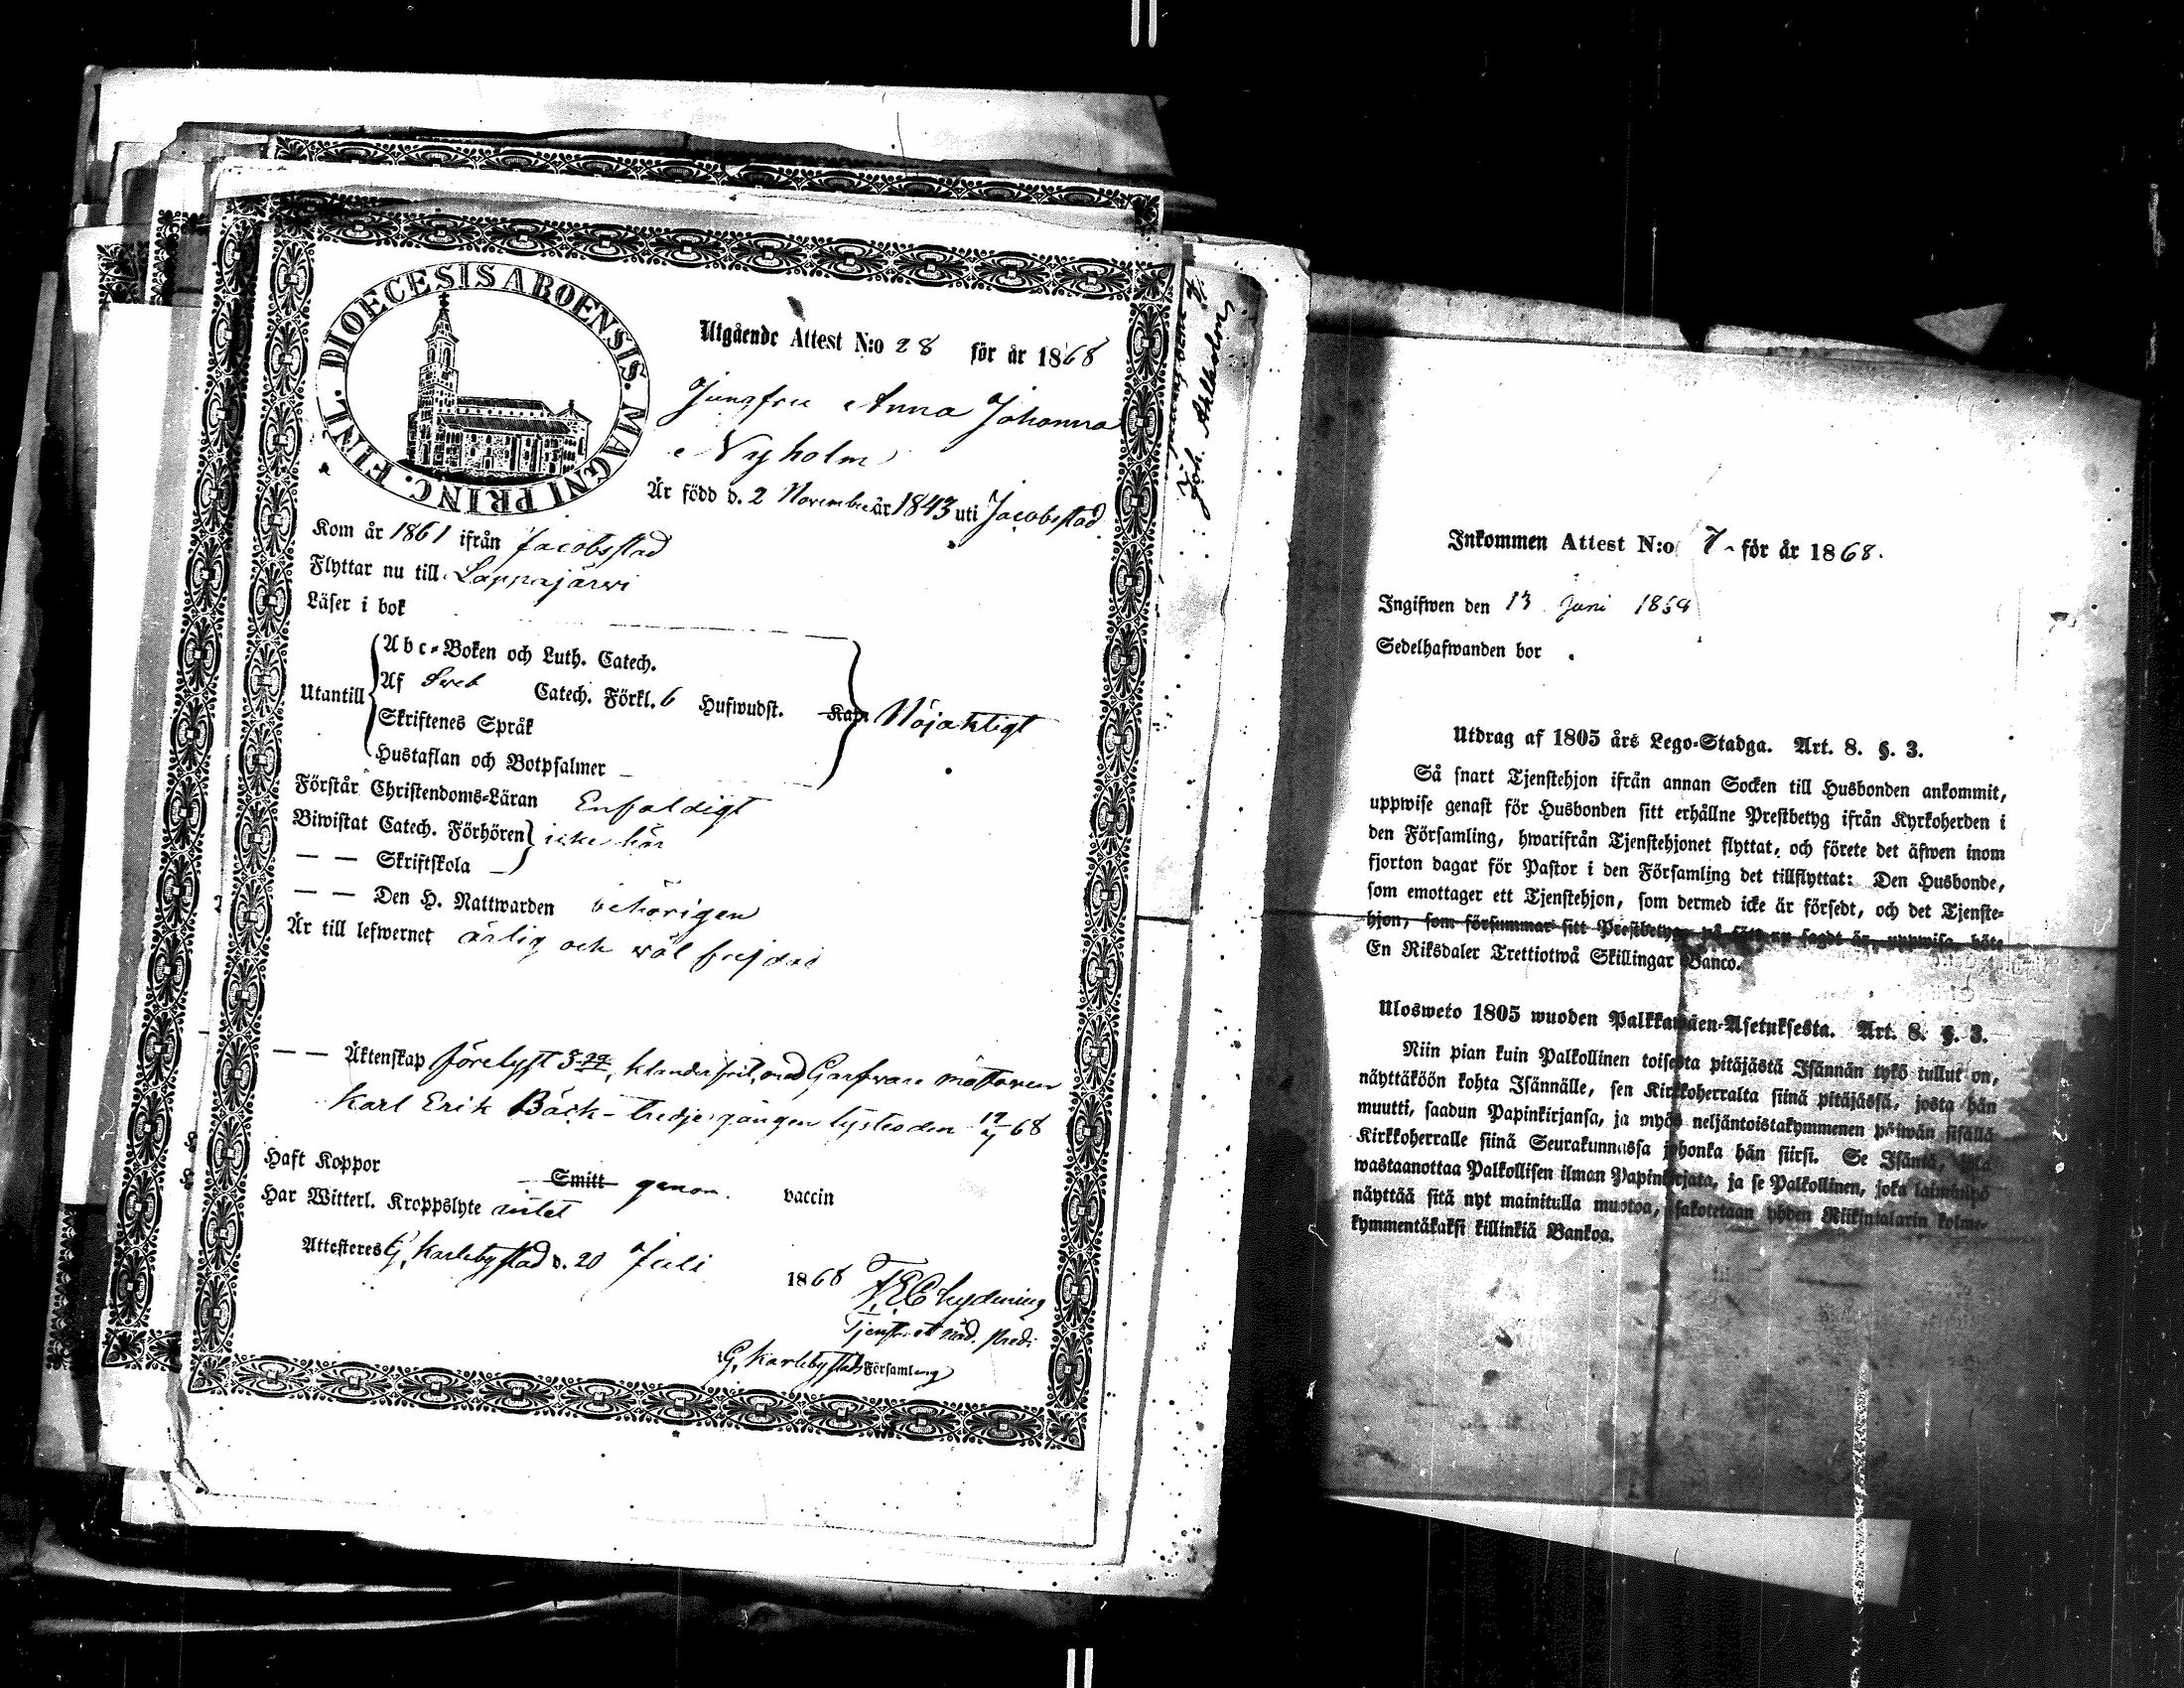 DIOECESIS ABOENSIS. MAGNI PRINC. FINL.
Utgående Attest N:o 28 för år 1868
Jungfru Anna Johanna
Nyholm
Är född d. 2 November år 1843 uti Jacobstad
Kom år 1861 ifrån Jacobsstad
Flyttar nu till Lappajärwi
Läser i bok
Utantill
Abc-Boken och Luth. Catech.
Af Sveb Catech. Förkl. 6 Hufwudst. Kap. Nöjaktigt
Skriftenes Språk
Hustaflan och Botpsalmer
Förstår Christendoms-Läran Enfaldigt
Biwistat Catech. Förhören icke här
— — Skriftskola
— — Den H. Nattwarden behörigen
Är till lefwernet ärlig och wäl frejdad
— — Äktenskap förelyst 3 klanderfritt, med Garfvare
Karl Erik Bäck - tredje gången lystes den 19/7 68
Haft Koppor Smitt genom vaccin
Har Witterl. Kroppslyte intet
Attesteres G. Karlebystad d. 20 Juli 1868
Tjenstf.
G. Karlebystads Församling
Joh. Ahlholm
Inkommen Attest N:o 7 för år 1868.
Ingifwen den 13 Juni
Sedelhafwanden bor
Utdrag af 1805 års Lego-Stadga. Art. 8. §. 3.
Så snart Tjenstehjon ifrån annan Socken till Husbonden ankommit,
uppwise genast för Husbonden sitt erhållne Prestbetyg ifrån Kyrkoherden i
den Församling, hwarifrån Tjenstehjonet flyttat, och förete det äfwen inom
fjorton dagar för Pastor i den Församling det tillflyttat: Den Husbonde,
som emottager ett Tjenstehjon, som dermed icke är försedt, och det Tjenste-
hjon, som försummar sitt Prestbetyg, på sätt nu sagdt är, uppwisa, böte
En Riksdaler Trettiotwå Skillingar Banco.
Ulosweto 1805 wuoden Palkkawäen-Asetuksesta. Art. 8. §. 3.
Niin pian kuin Palkollinen toisesta pitäjästä Isännän tykö tullut on,
näyttäköön kohta Isännälle, sen Kirkkoherralta siinä pitäjässä, josta hän
muutti, saadun Papinkirjansa, ja myös neljäntoistakymmenen päiwän sisällä
Kirkkoherralle siinä Seurakunnassa johonka hän siirsi. Se Isäntä, joka
wastaanottaa Palkollisen ilman Papinkirjata, ja se Palkollinen, joka laiminlyö
näyttää sitä nyt mainitulla muotoa, sakotetaan yhden Riikintalarin kolme-
kymmentäkaksi killinkiä Bankoa.